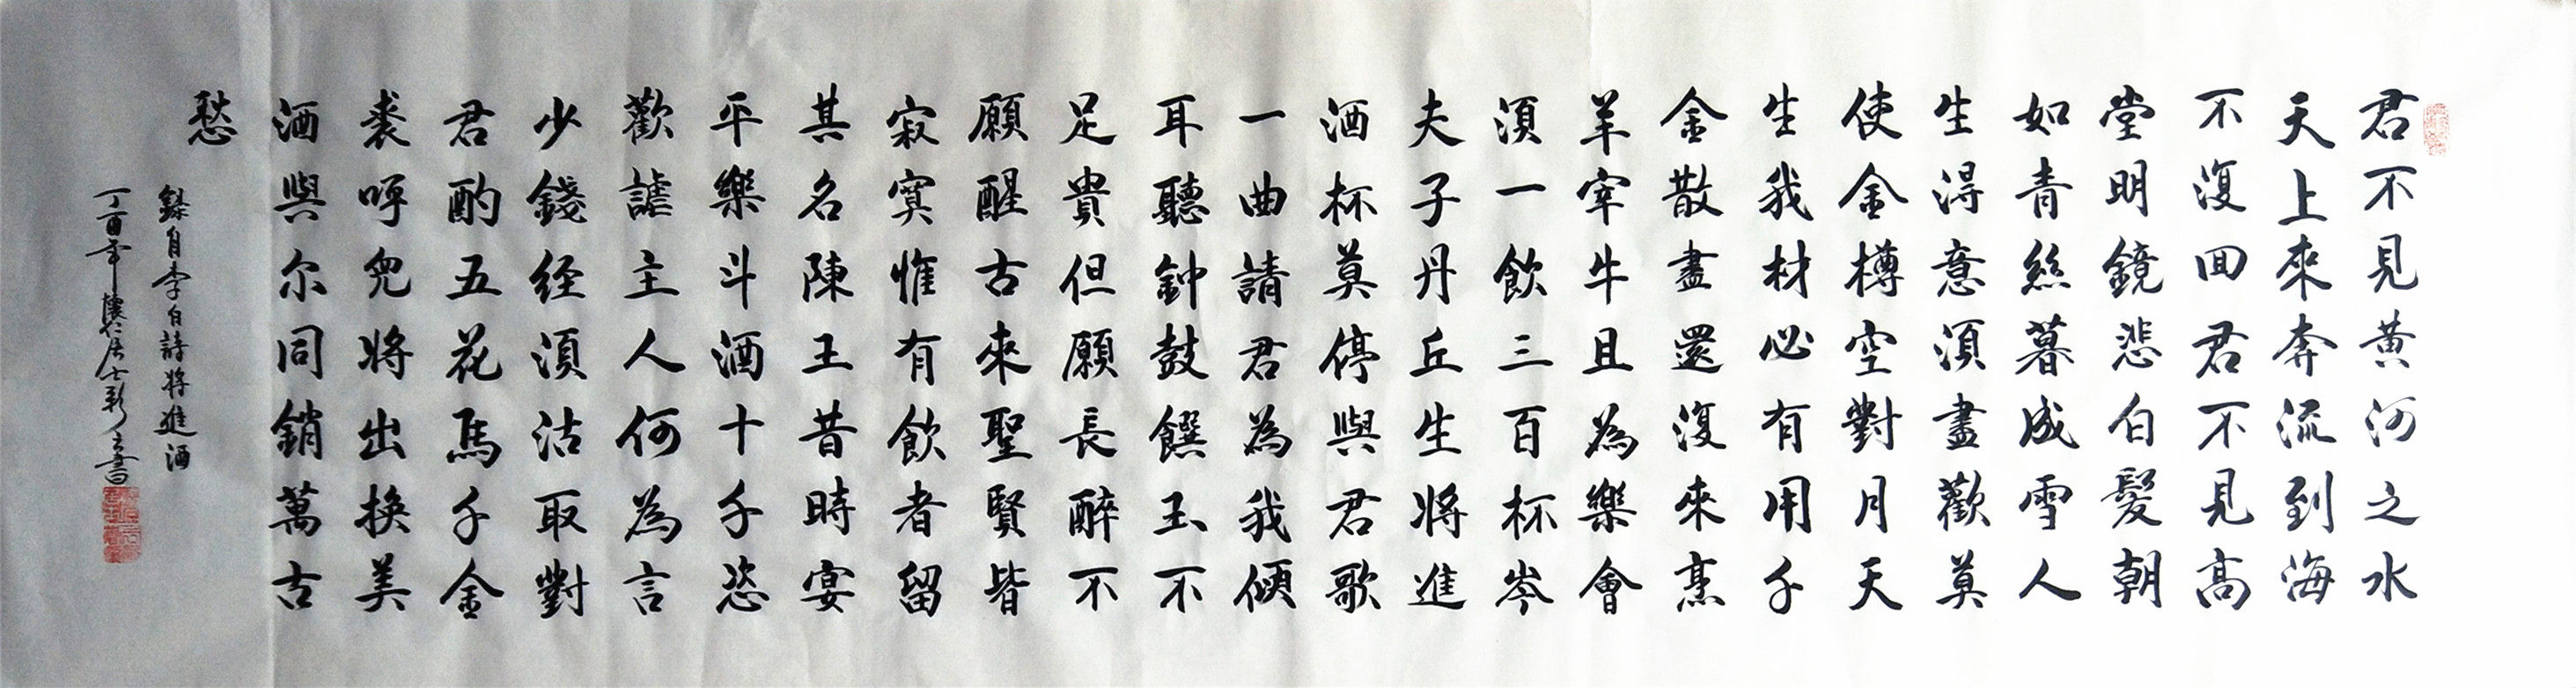 君不見黃河之水
天上來奔流到海
不復回君不見高
堂明鏡悲白髮朝
如青絲暮成雪人
生得意須盡歡莫
使金樽空對月天
生我材必有用千
金散盡還復來烹
羊宰牛且為樂會
須一飲三百杯岑
夫子丹丘生將進
酒杯莫停與君歌
一曲請君為我傾
耳聽鐘鼓饌玉不
足貴但願長醉不
願醒古來聖賢皆
寂寞惟有飲者留
其名陳王昔時宴
平樂斗酒十千恣
歡謔主人何為言
少錢經須沽取對
君酌五花馬千金
裘呼兒將出換美
酒與尔同銷萬古
愁
錄自李白詩將進酒
丁酉年懷仁居士彭書